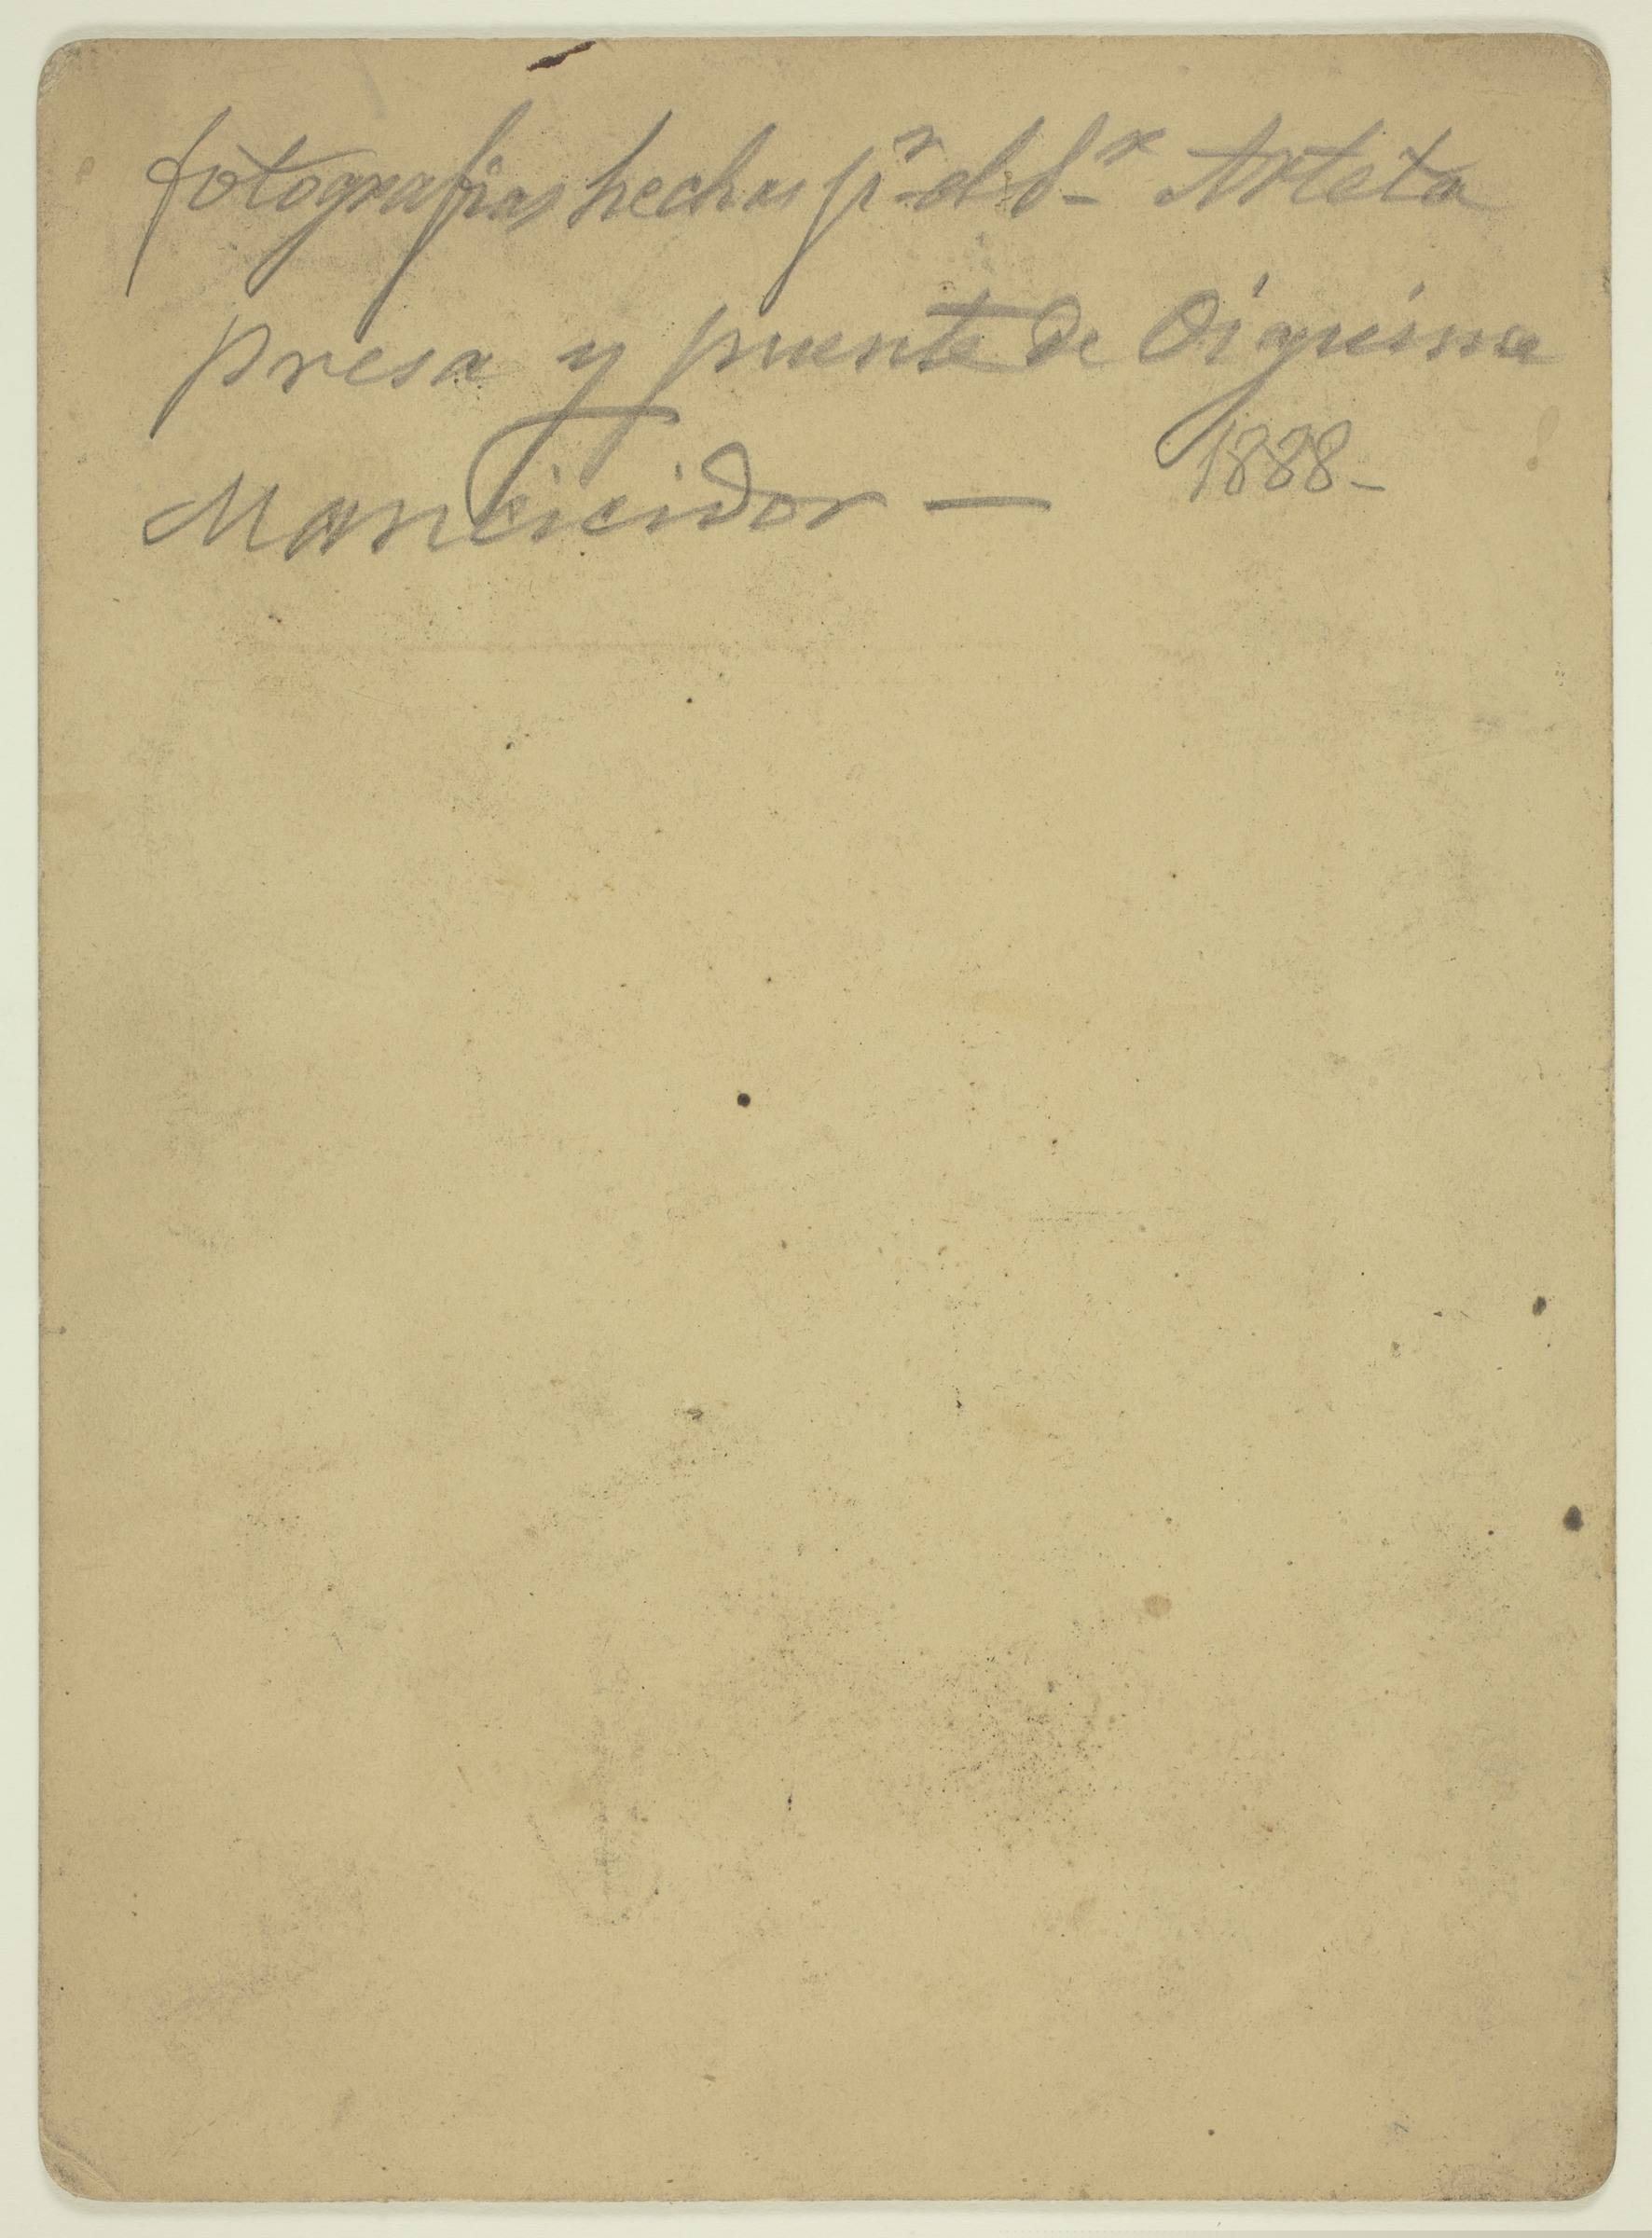 fotografias hechas pr el Sr Arteta
presa y puente de Oiquina
1888-
Mancicidor —